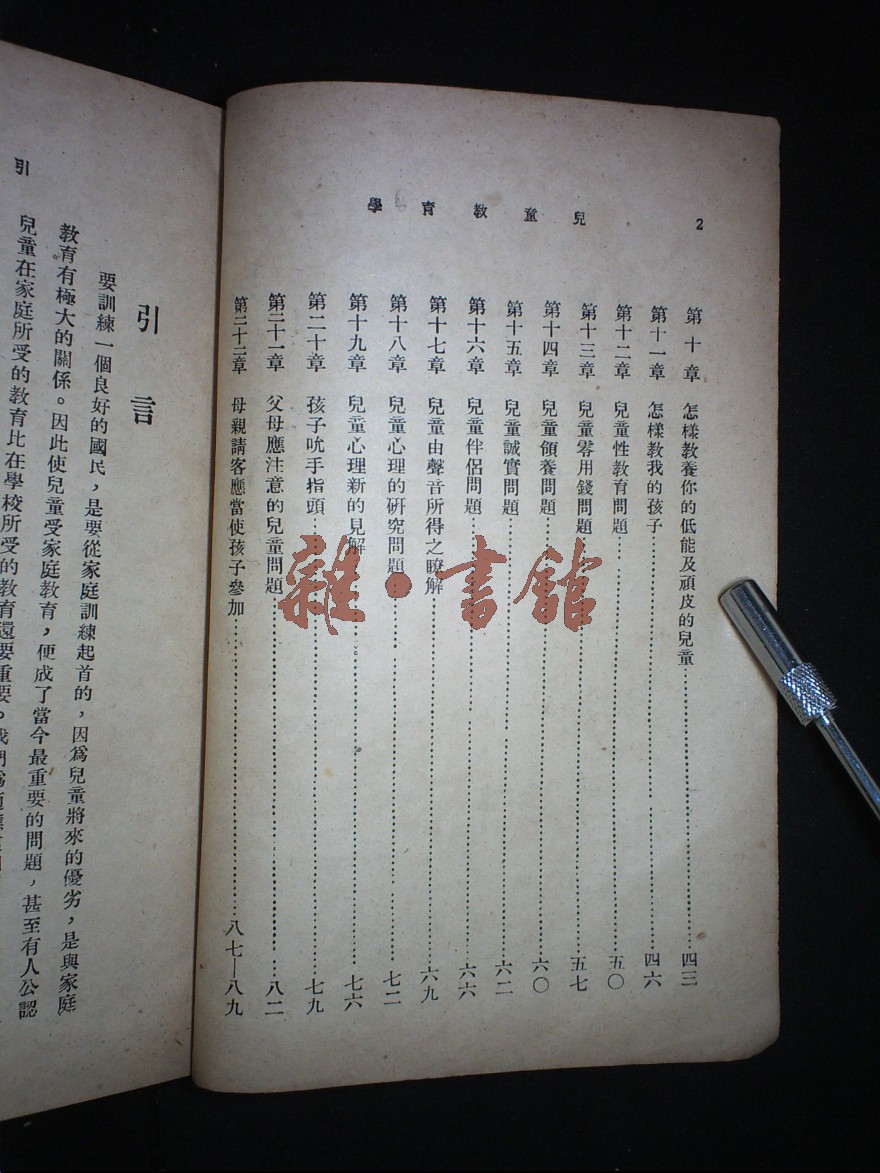 2 兒童教育學
第十章 怎樣教養你的低能及頑皮的兒童……四三
第十一章 怎樣教我的孩子……四六
第十二章 兒童性教育問題……五〇
第十三章 兒童零用錢問題……五七
第十四章 兒童領養問題……六〇
第十五章 兒童誠實問題……六二
第十六章 兒童伴侶問題……六六
第十七章 兒童由聲音所得之瞭解……六九
第十八章 兒童心理的研究問題……七二
第十九章 兒童心理新的見解……七六
第二十章 孩子吮手指頭……七九
第二十一章 父母應注意的兒童問題……八二
第二十二章 母親請客應當使孩子參加……八七—八九
雜·書館
引
引言
要訓練一個良好的國民，是要從家庭訓練起首的，因爲兒童將來的優劣，是與家庭
教育有極大的關係。因此使兒童受家庭教育，便成了當今最重要的問題，甚至有人公認
兒童在家庭所受的教育比在學校所受的教育還要重要。我們爲適應